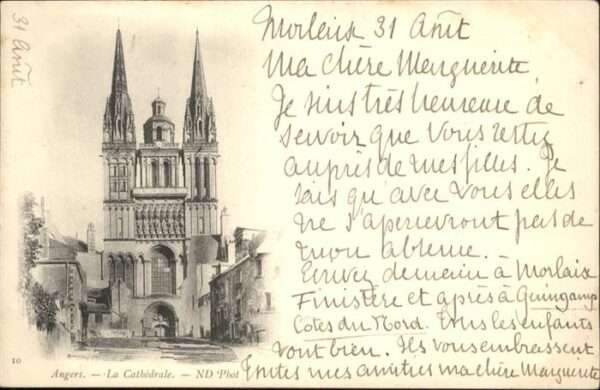 31 Août
Morlaix 31 Août
Ma chère Marguerite,
Je suis très heureuse de
savoir que vous restez
auprès de mes filles. Je
sais qu'avec vous elles
ne s'apercevront pas de
mon absence. _
Ecrivez demain à Morlaix
Finistère et après à Guingamp
Côtes du Nord. Tous les enfants
vont bien. Ils vous embrassent
Toutes mes amitiés ma chère Marguerite
10
Angers. — La Cathédrale. — ND Phot